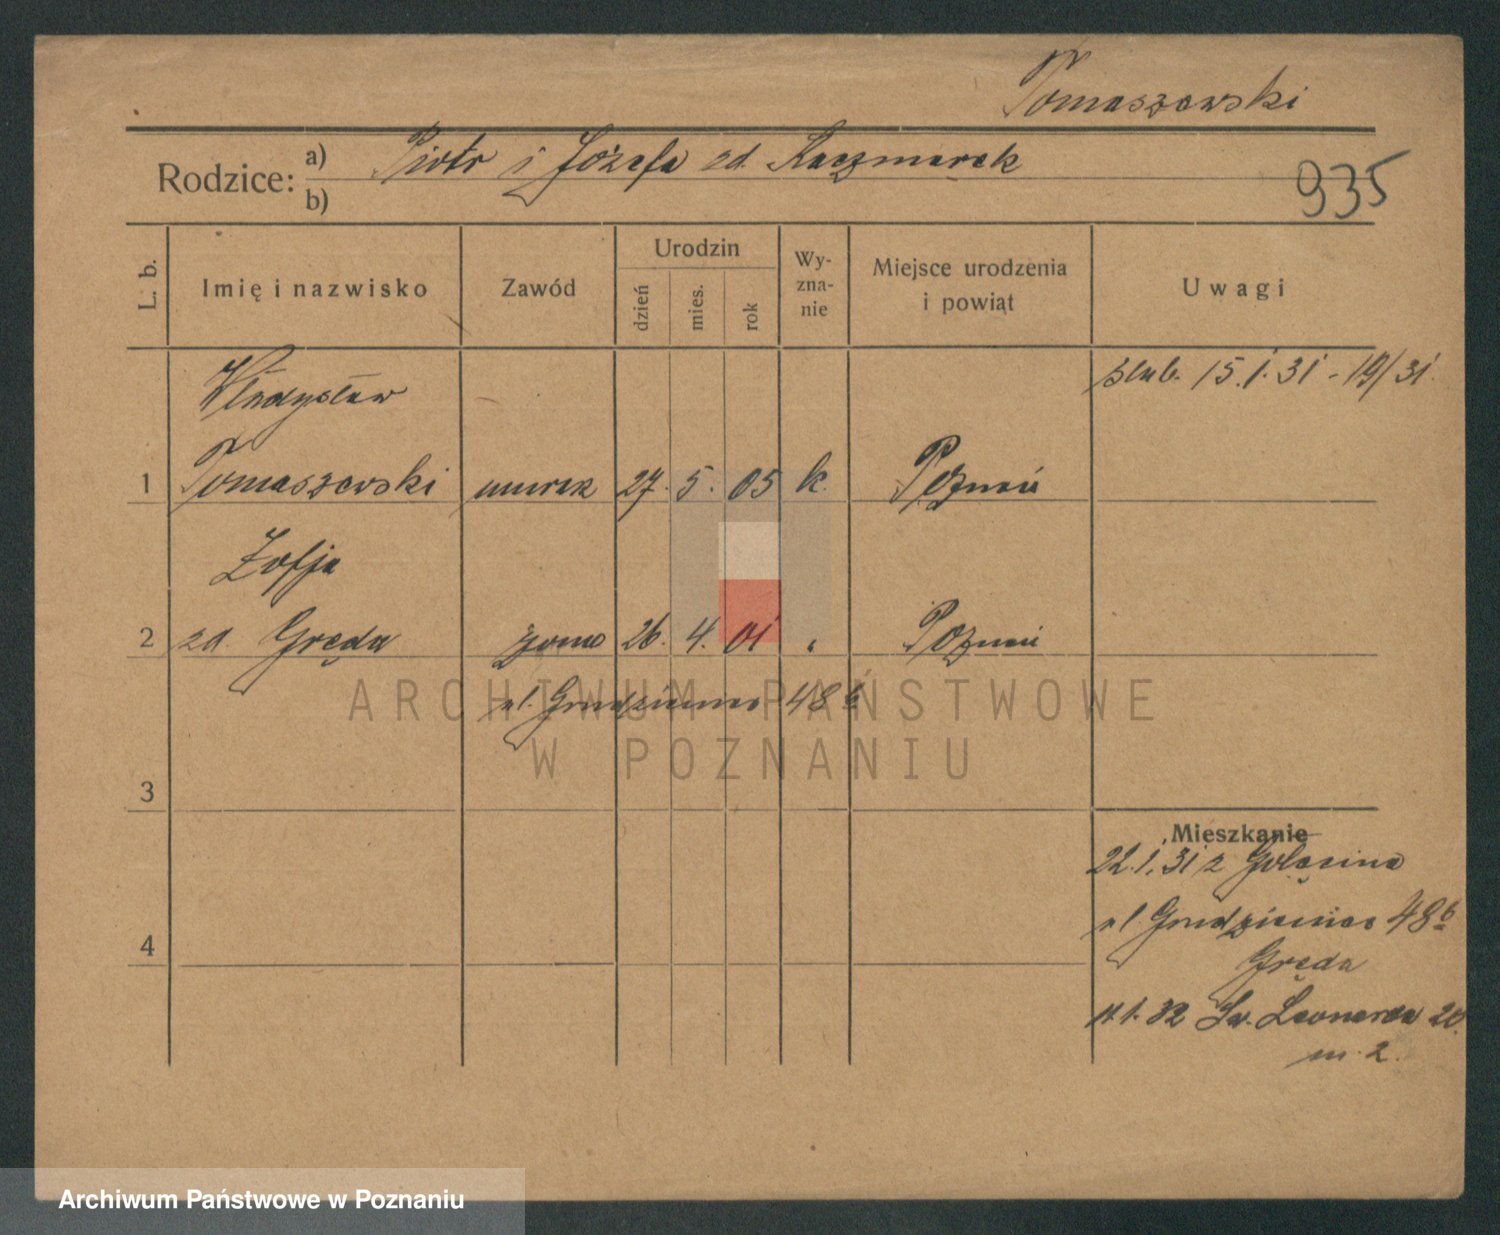 Tomaszewski
Rodzice: a) Piotr i Józefa zd. Kaczmarek
b)
935
L. b.
Imię i nazwisko
Zawód
Urodzin
dzień
mies.
rok
Wy-
zna-
nie
Miejsce urodzenia
i powiąt
Uwagi
Władysław
ślub. 15.1.31 - 19/31
1 Tomaszewski murarz 27. 5. 05 k. Poznań
Zofja
2 zd. Gręda żona 26. 4. 01 " Poznań
ul. Grudzieniec 48 b
ARCHIWUM PAŃSTWOWE
W POZNANIU
3
Mieszkanie
22.1.31 z Golęcina
ul. Grudzieniec 48 b
4
Gręda
1.32 Św. Leonarda 20
m. 2.
Archiwum Państwowe w Poznaniu